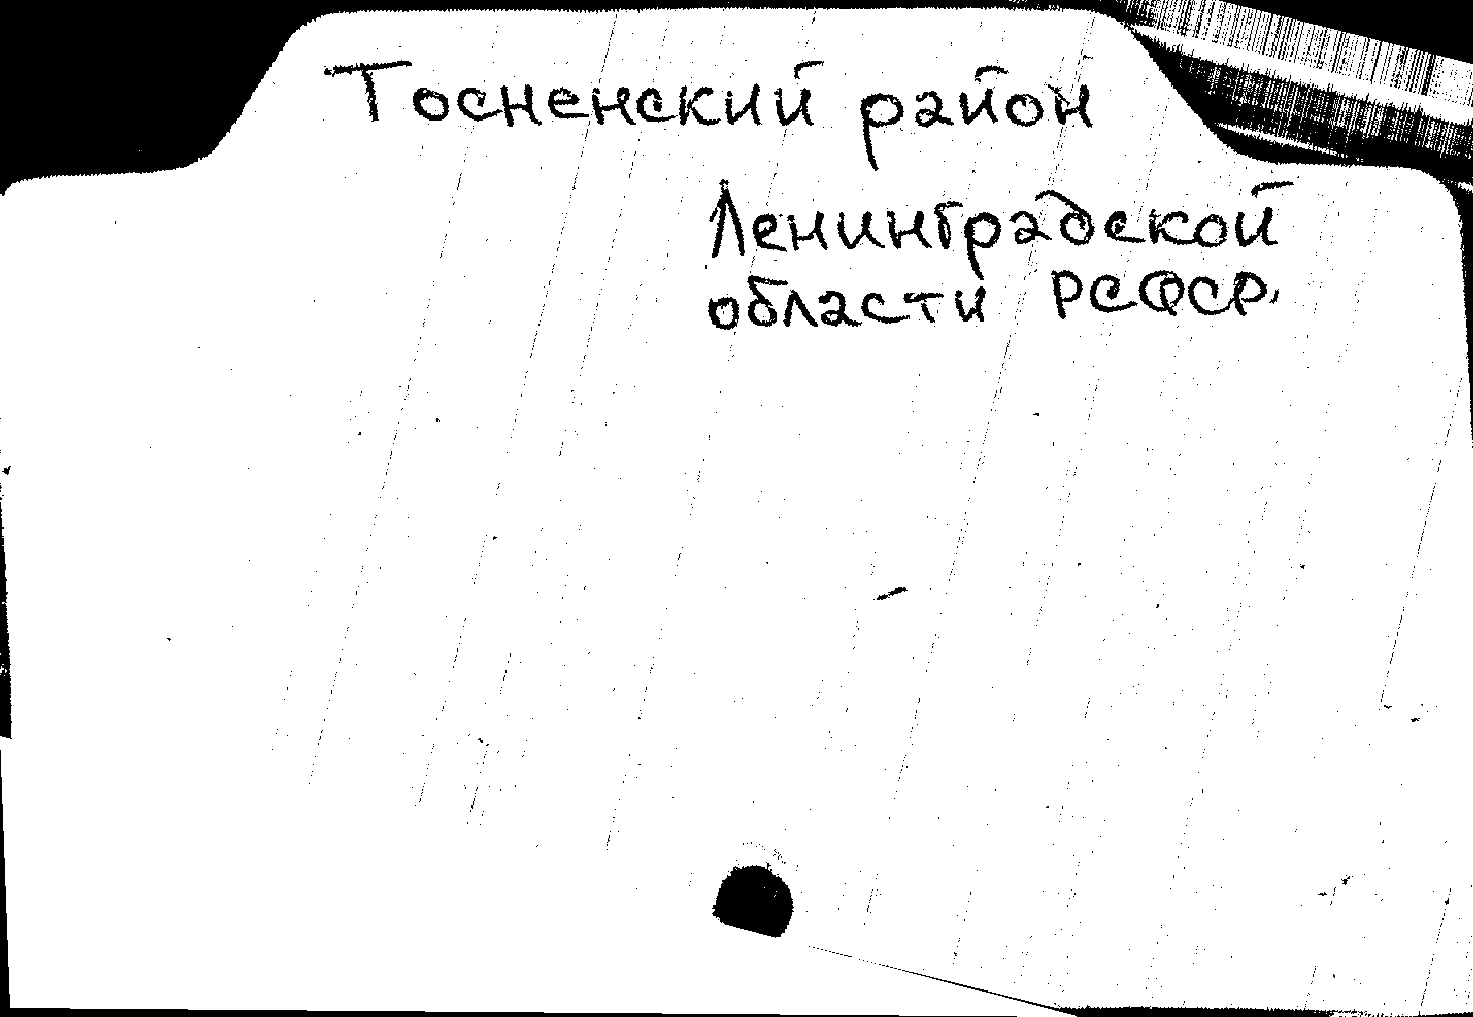 Тосненский район
Ленинградской
области РСФСР,